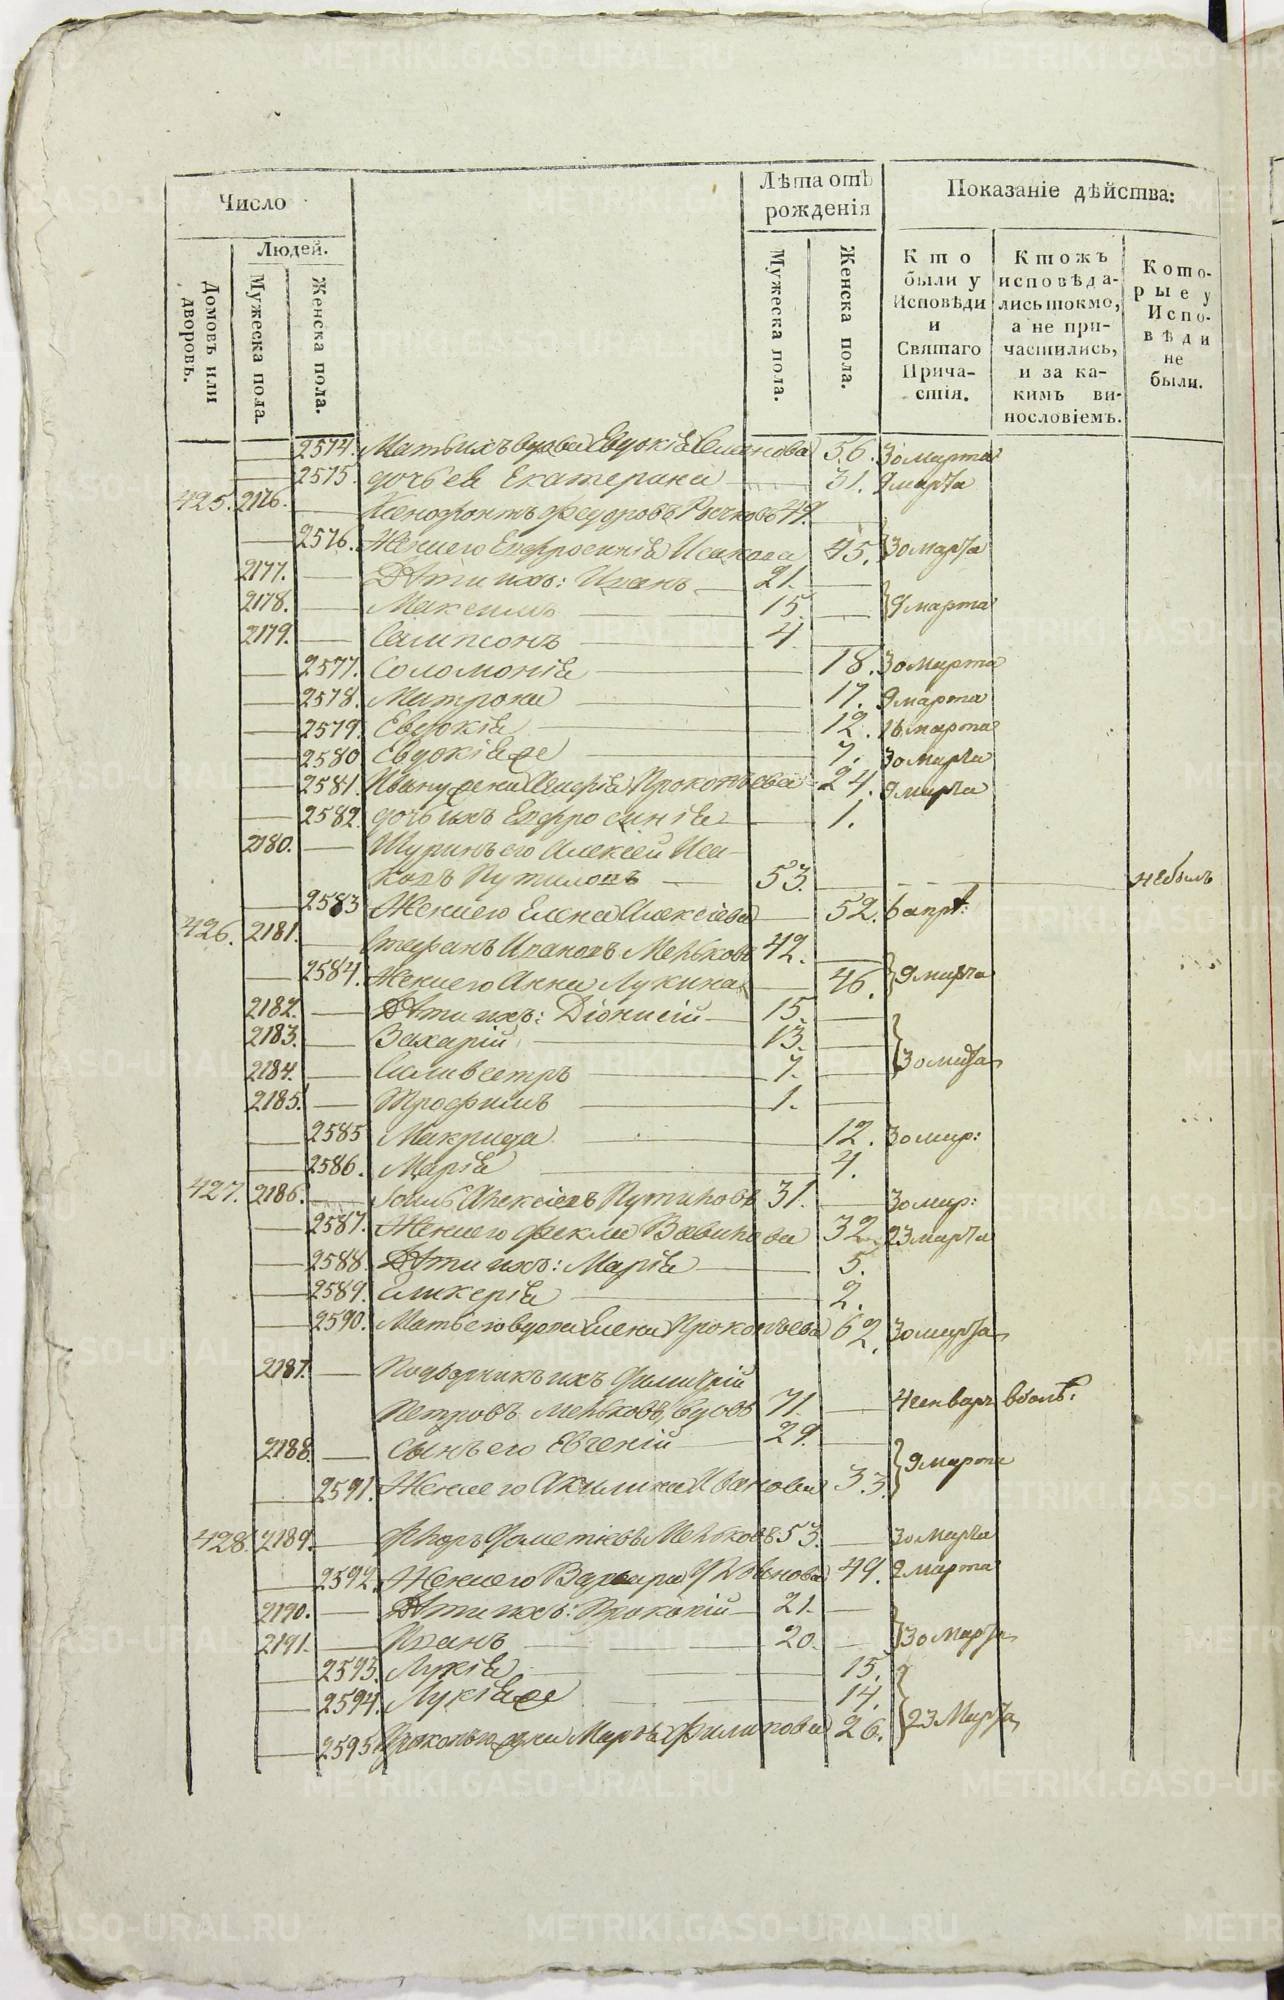 Число
Лѣта отъ рожденія
Показаніе дѣйства:
Людей.
Домовъ или дворовъ.
Мужеска пола.
Женска пола.
Мужеска пола.
Женска пола.
Кто были у Исповѣди и Святаго Причастія.
Ктожъ исповѣдались токмо, а не причастились, и за какимъ винословіемъ.
Которые у Исповѣди не были.
2574. Мать ихъ вдова Евдокія Семенова 56. 30 марта
2575. дочь ея Екатерина 31. 9 марта
425. 2176. Ксенофонтъ Федоровъ Рычковъ 49.
2576. Жена его Евфросинія Исакова 45. 30 марта
2177. Дѣти ихъ: Иванъ 21.
2178. Максимъ 15. 9 марта
2179. Сампсонъ 4.
2577. Соломонія 18. 30 марта
2578. Матрона 17. 9 марта
2579. Евдокія 12. 16 марта
2580 Евдокія же 7. 30 марта
2581. Ивану жена Прокопьева 24. 9 марта
2582. дочь ихъ Евфросинія 1.
2180. Шуринъ его Алексей Иса-
ковъ Путиловъ 53. небылъ
2583 Жена его Елена Алексіева 52. 6 апр:
426. 2181. Стефанъ Ивановъ Меньковъ 42.
2584. Жена его Анна Лукина 46. 9 марта
2182. Дѣти ихъ: Діонисій 15.
2183. Захарій 13.
2184. Силивестръ 7. 30 марта
2185. Трофимъ 1.
2585 Макрида 12. 30 мар:
2586. Марія 4.
427. 2186. Іоиль Алексіевъ Путиловъ 31. 30 мар:
2587. Жена его Фекла Вавилова 32 23 марта
2588. Дѣти ихъ: Марія 5.
2589. Гликерія 2.
2590. Мать его вдова Елена Прокопьева 62. 30 марта
2187. Подворникъ ихъ Димитрій
Петровъ Меньковъ, вдовъ 71.
2188. Сынъ его Евгеній 29.
2591. Жена его Акилина Иванова 33. 9 марта
428. 2189. Меньковъ 53. 30 марта
2592. Жена его Варвара 49. 9 марта
2190. Дѣти ихъ: Прокопій 21.
2191. Иванъ 20. 30 марта
2593. Лукія 15.
2594. Лукія же 14.
2595 Прокопью жена Марѳа Филипова 26. 23 Марта
METRIKI.GASO-URAL.RU